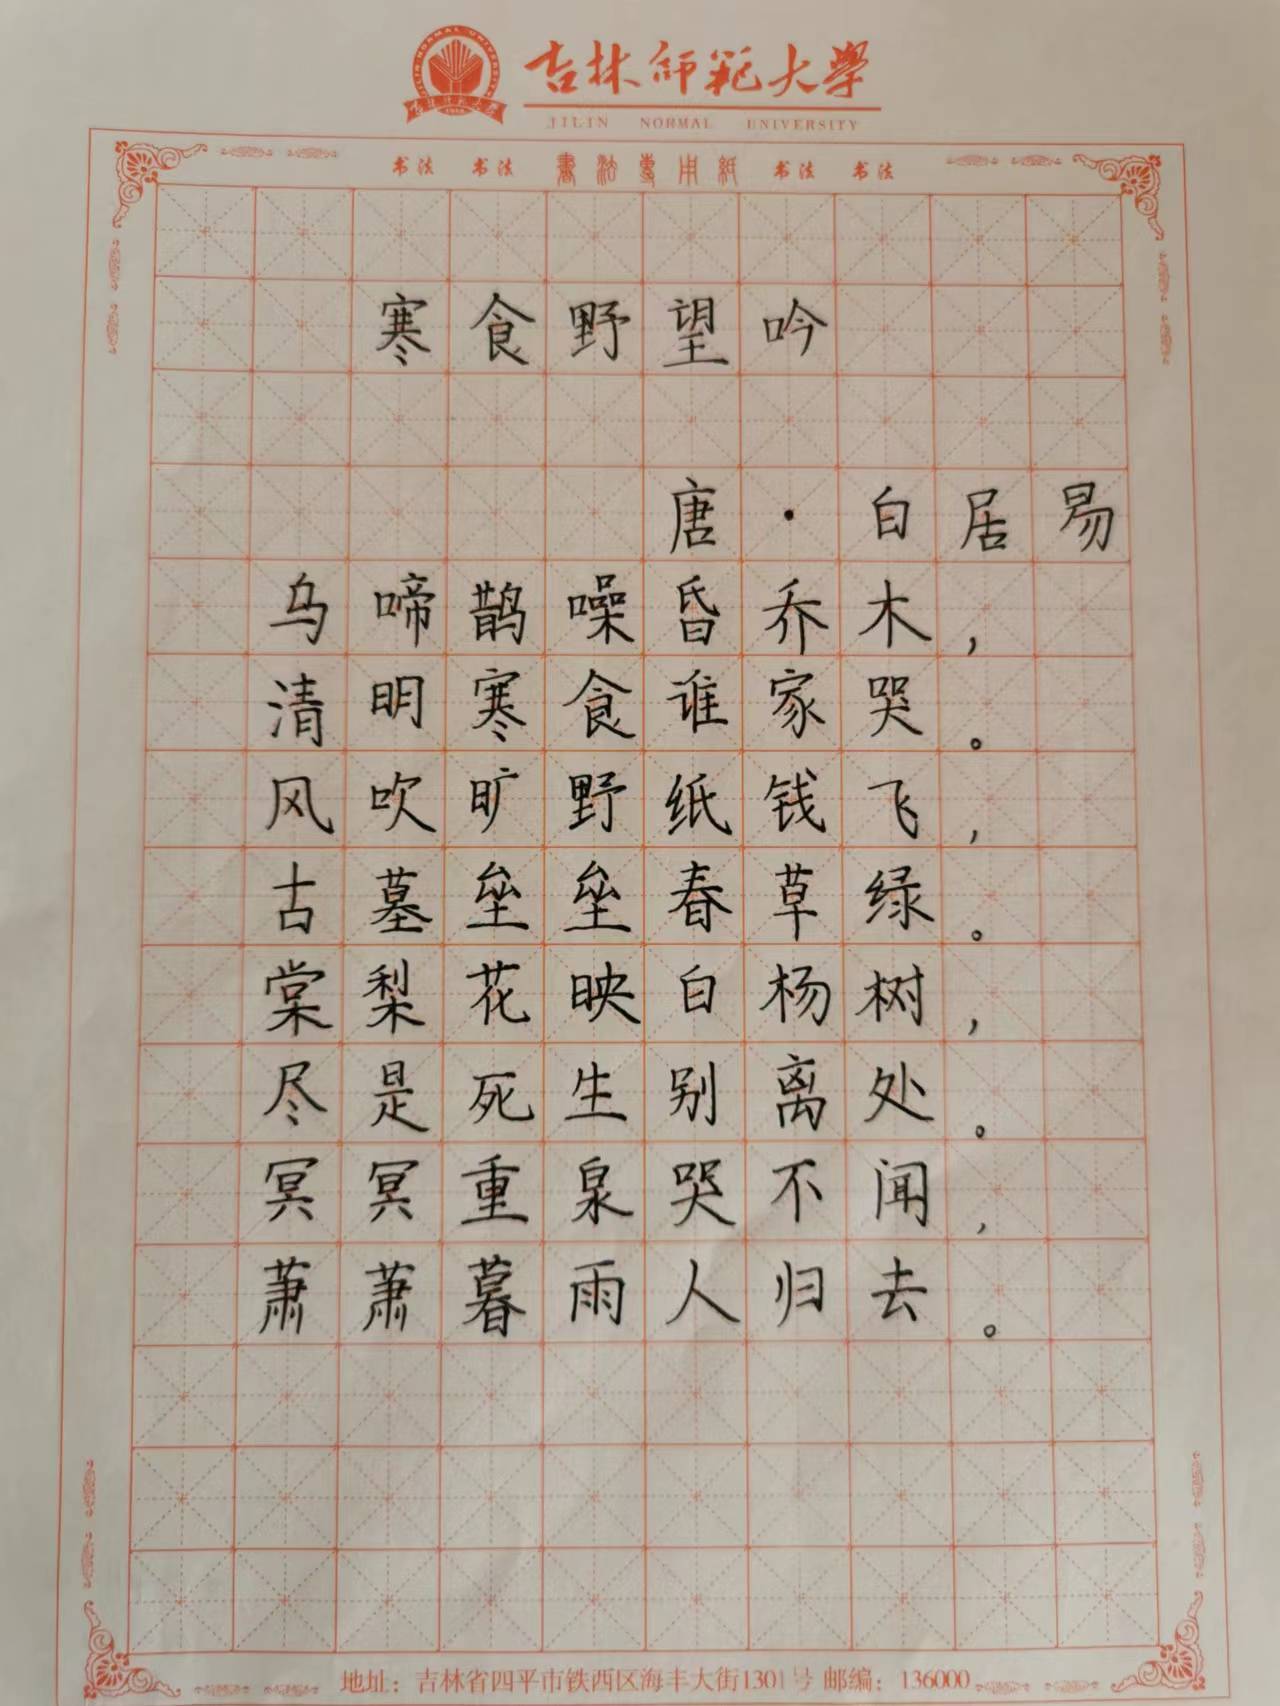 吉林师范大學
JILIN NORMAL UNIVERSITY
书法 书法 書法專用紙 书法 书法
寒食野望吟
唐·白居易
乌啼鹊噪昏乔木，
清明寒食谁家哭。
风吹旷野纸钱飞，
古墓垒垒春草绿。
棠梨花映白杨树，
尽是死生别离处。
冥冥重泉哭不闻，
萧萧暮雨人归去。
地址：吉林省四平市铁西区海丰大街1301号 邮编：136000